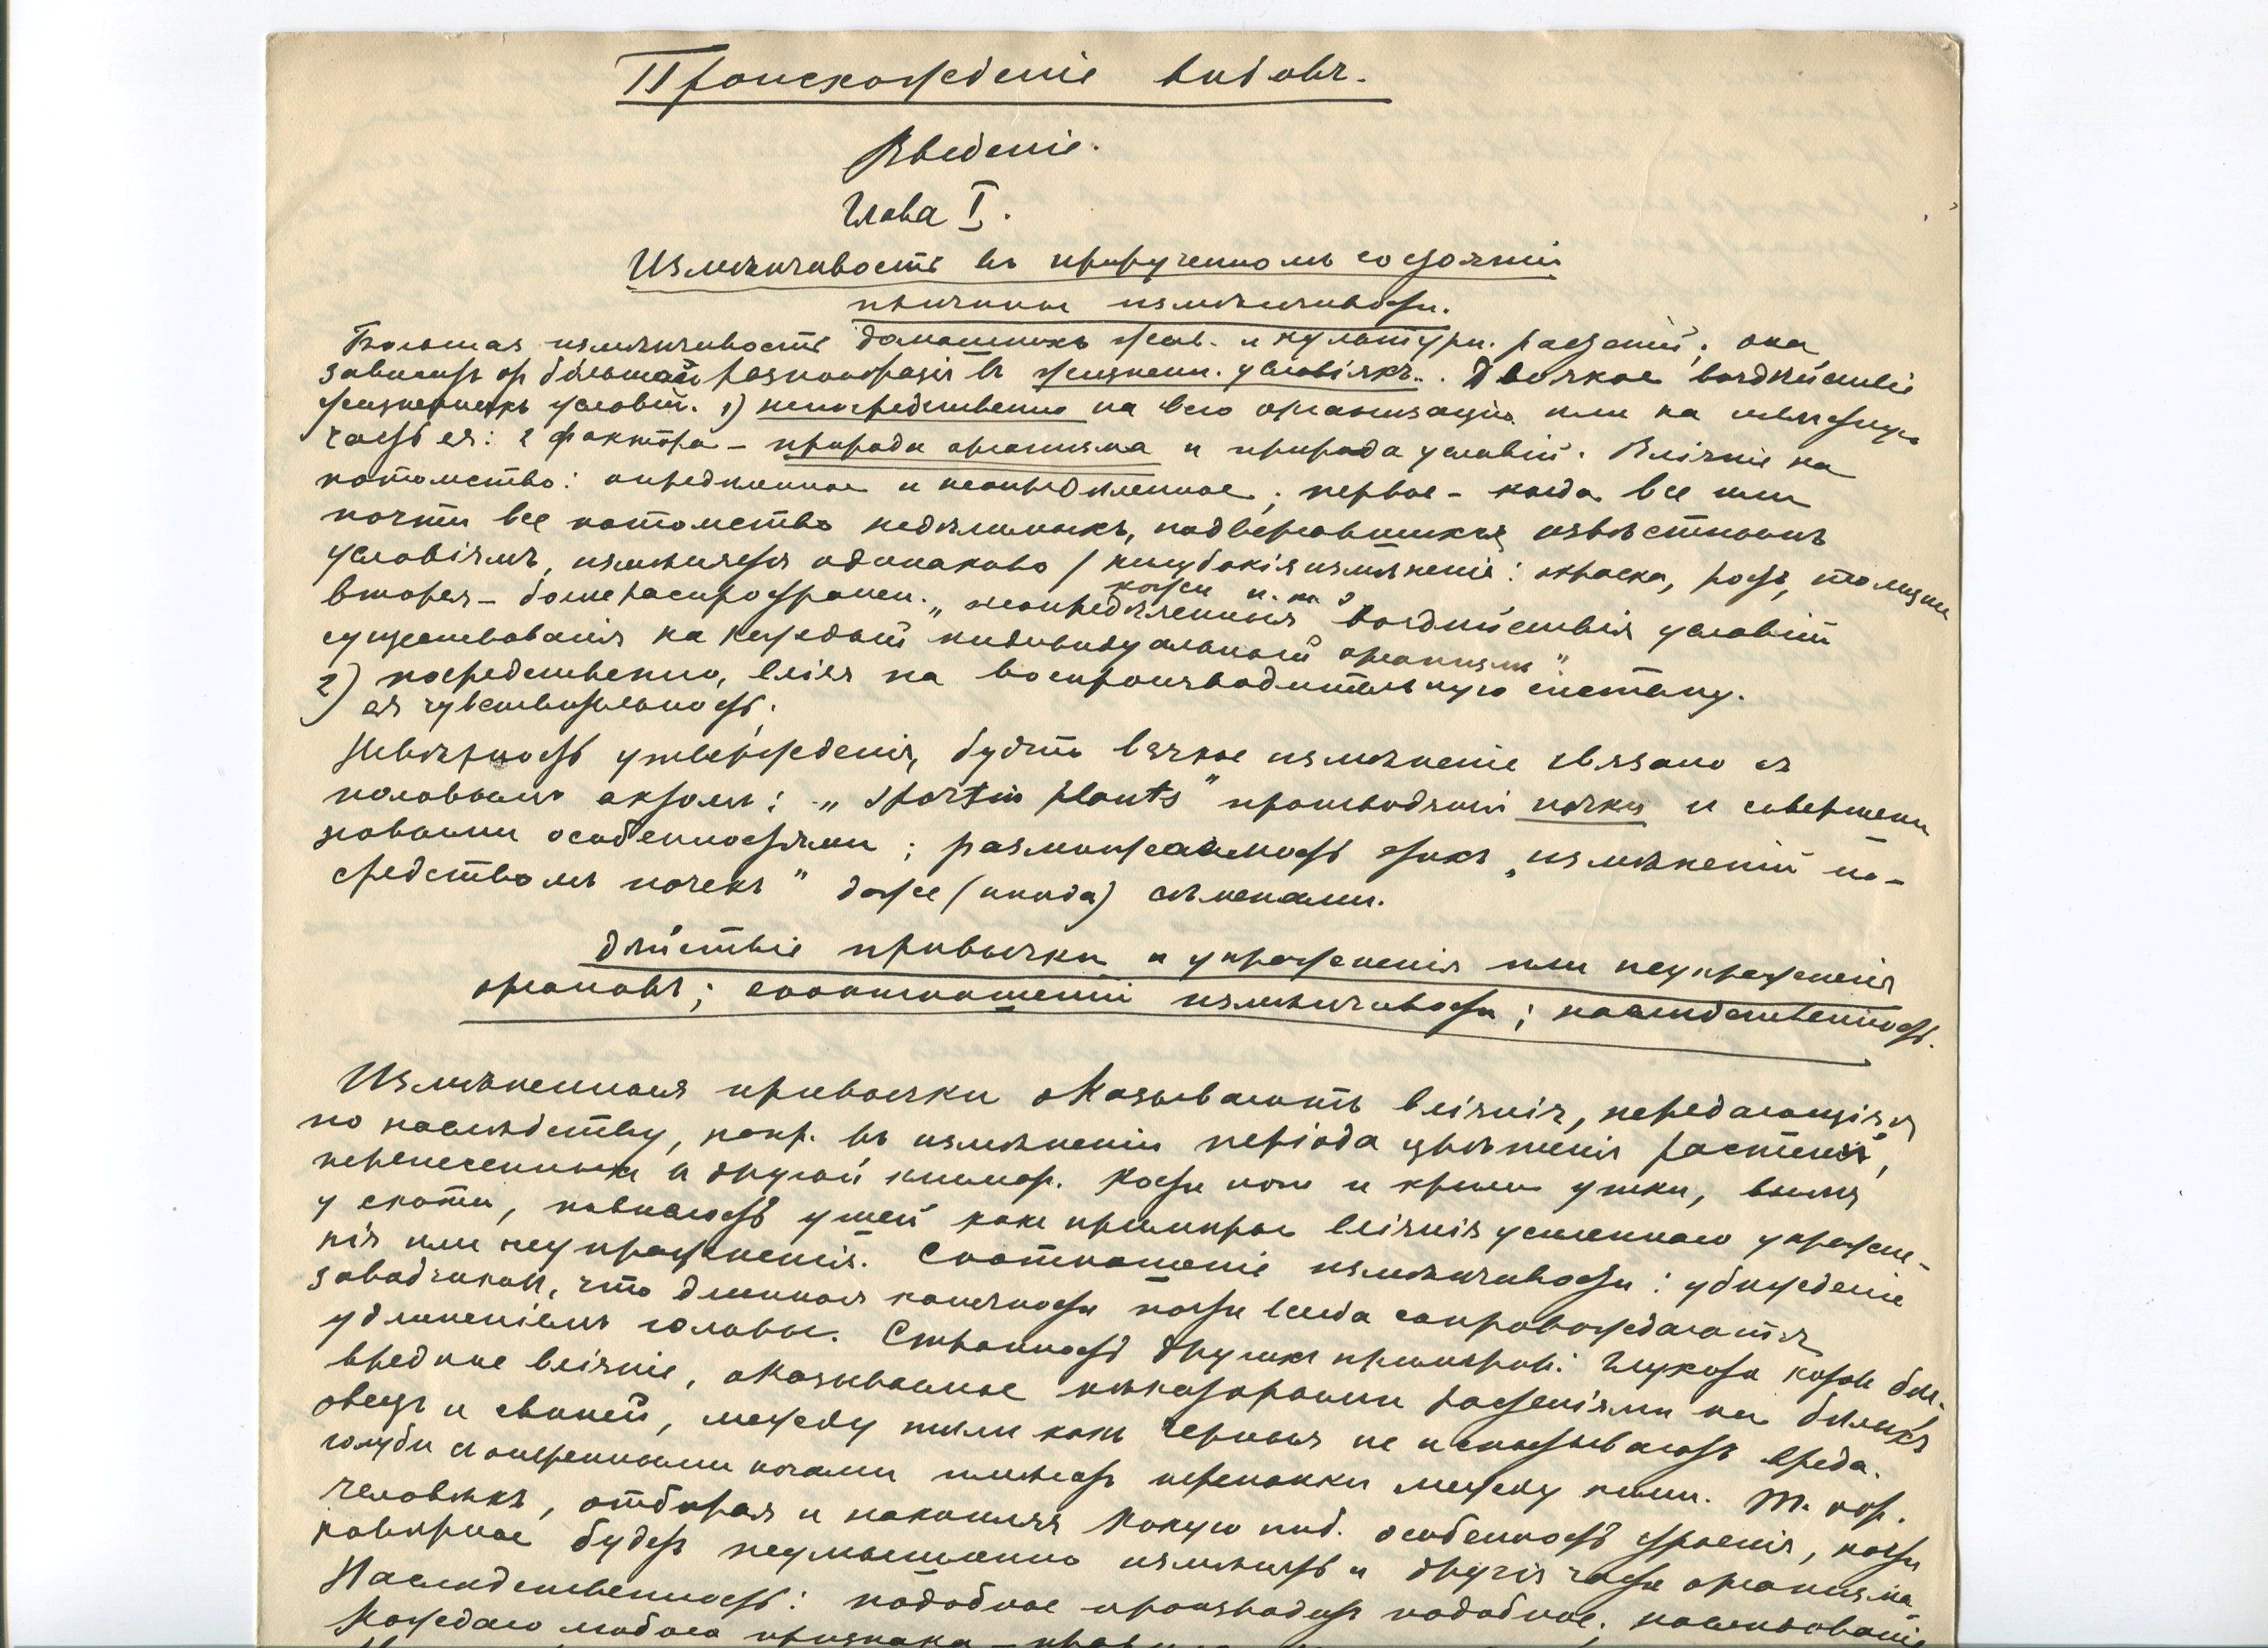 Происхожденіе видовъ.
Введеніе.
Глава I.
Измѣнчивость въ прирученномъ состояніи
причины измѣнчивости.
Большая измѣнчивость домашнихъ жив. и культурн. растеній; она
зависитъ от большей разнообразія въ жизненн. условіяхъ. Двоякое воздѣйствіе
жизненныхъ условій. 1) непосредственно на всю организацію или на известную
часть ея: 2 фактора – природа организма и природа условій. Вліяніе на
потомство: опредѣленное и неопредѣленное; первое – когда все или
почти все потомство недѣлимыхъ, подвергавшихся извѣстнымъ
условіямъ, измѣняется одинаково / неглубокія измѣненія: окраска, ростъ, толщина
кожи и. т. д
вторая – более распространен. „неопредѣленныя воздѣйствія условій
существованія на каждый индивидуальный организмъ"
2) посредственно, вліяя на воспроизводительную систему.
ея чувствительность.
Невѣрность утвержденія, будто всякое измѣненіе связано съ
половымъ актомъ: „sporting plants" производящій почки и совершенн
новыми особенностями; размножаемость этихъ „измѣненій по-
средствомъ почекъ" даже (иногда) сѣменами.
дѣйствіе привычки и упражненія или неупражненія
органовъ; соотношеніе измѣнчивости; наслѣдственность.
Измѣненныя привычки оказываютъ вліянія, передающіяся
по наслѣдству, напр. въ измѣненіи періода цвѣтенія растеній,
перенесенныхъ в другой климатъ. Кости ногъ и крыла утки, вымя
у скота, повислость ушей какъ примѣры вліянія усиленнаго упражне-
нія или неупражненія. Соотношеніе измѣнчивости: убѣжденіе
заводчиковъ, что длинныя конечности почти всегда сопровождаются
удлиненіемъ головы. Странность другихъ примѣровъ: глухота котовъ бѣл.
вредное вліяніе, оказываемое нѣкоторыми растеніями на бѣлыхъ
овецъ и свиней, между тѣмъ какъ черныя не испытываютъ вреда.
голуби съ оперенными ногами имѣютъ перепонки между ними. Т. обр.
человѣкъ, отбирая и накопляя какую ниб. особенность строенія, почти
навѣрное будетъ неумышленно измѣнять и другія части организма.
Наслѣдственность: подобное производитъ подобное; наслѣдованіе
каждаго любого признака –